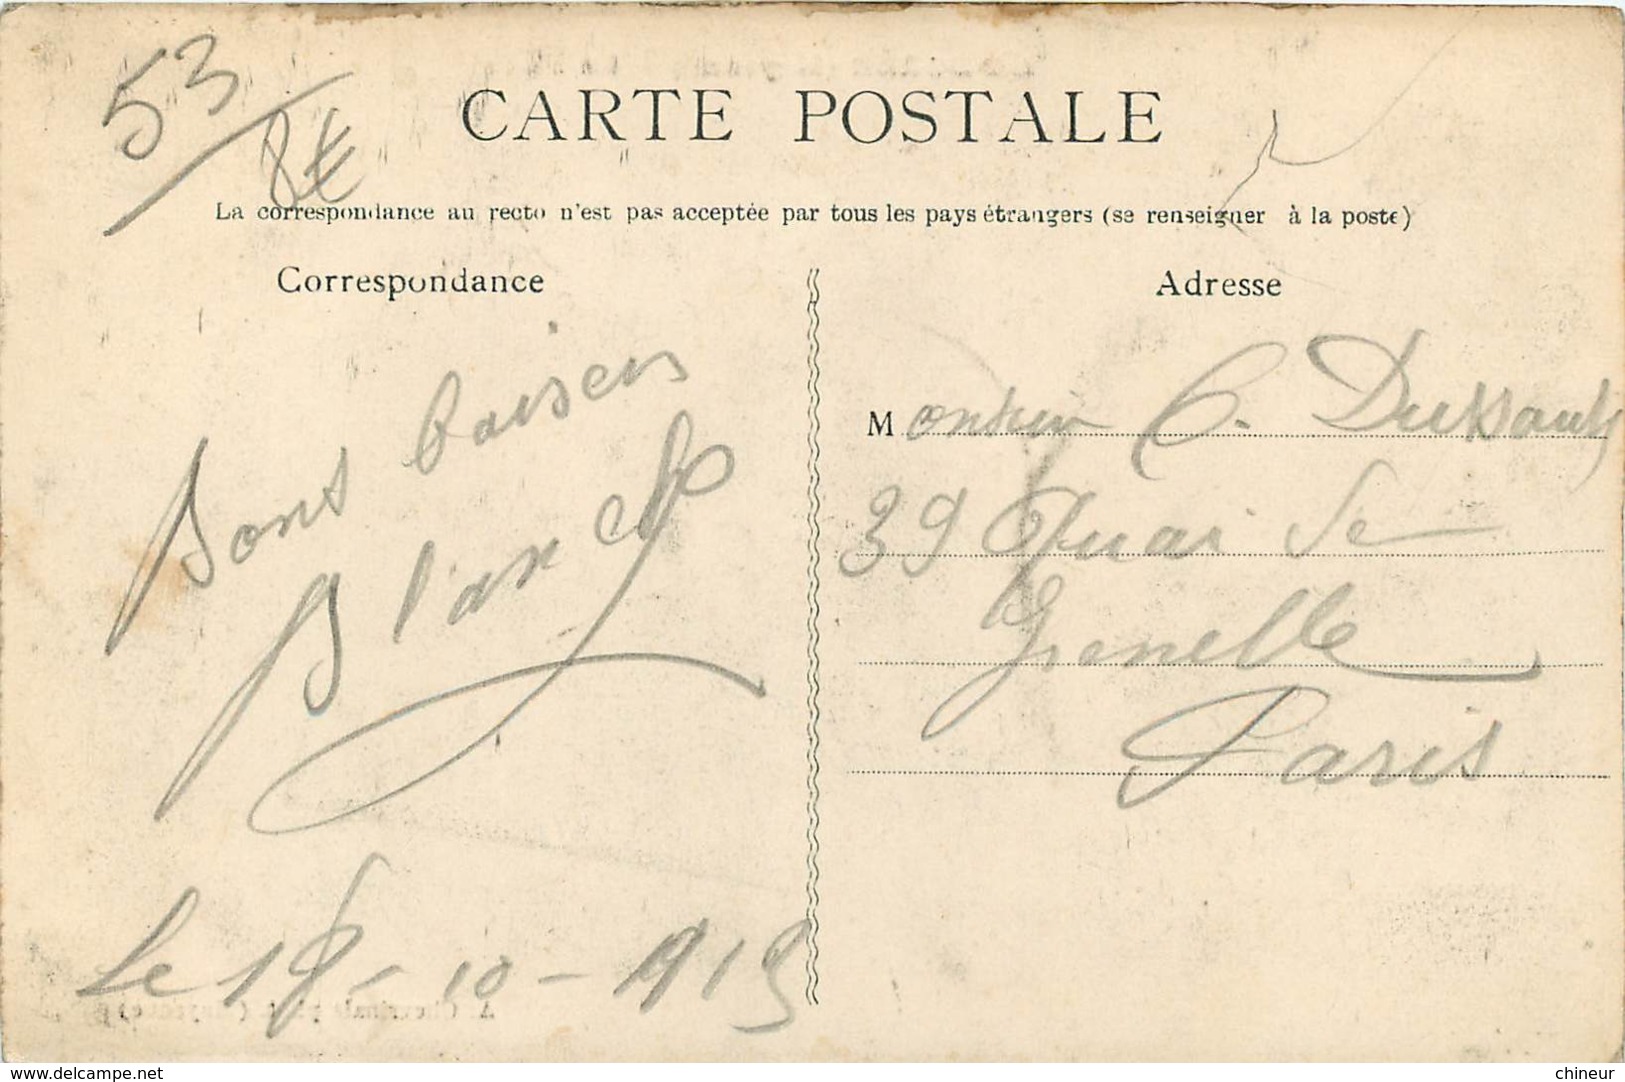 53
8€
CARTE POSTALE
La correspondance au recto n'est pas acceptée par tous les pays étrangers (se renseigner à la poste)
Correspondance
Bons baisers
Blanche
le 18-10-1915
Adresse
Monsieur C. Dussault
39 Quai de
Grenelle
Paris
www.delcampe.net
chineur